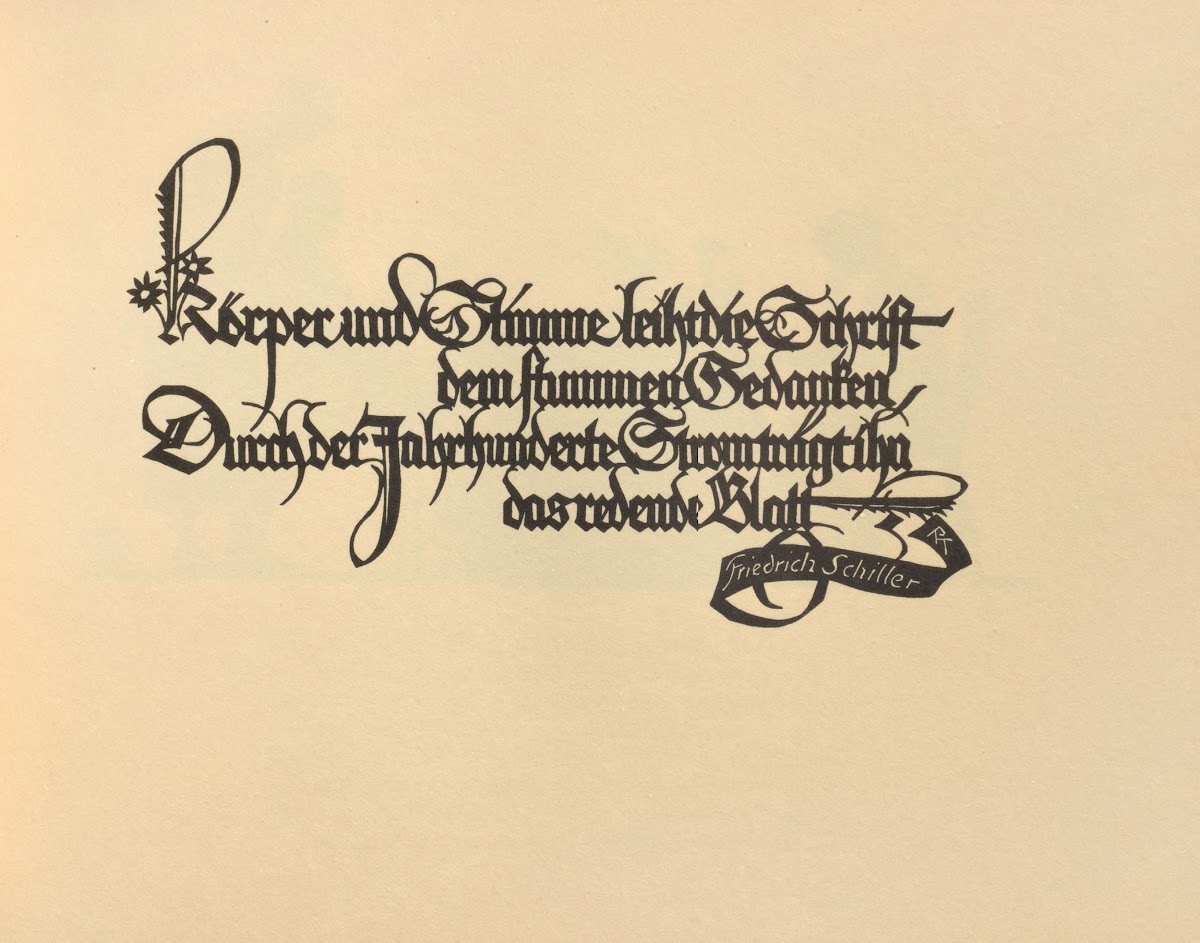 Körper und Stimme leiht die Schrift
dem stummen Gedanken,
Durch der Jahrhunderte Strom trägt ihn
das redende Blatt
Friedrich Schiller